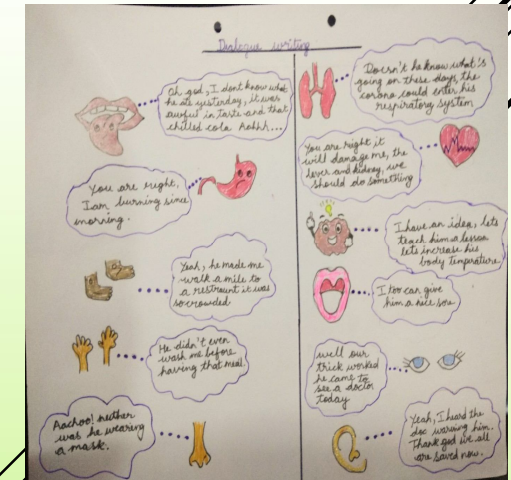 Dialogue writing
Oh god, I dont know what
he ate yesterday, it was
awful in taste and that
chilled cola hohhh...
You are right,
I am burning since
morning.
Yeah, he made me
walk a mile to
a restraunt it was
so crowded
He didn't even
wash me before
having that meal.
Aachoo! neither
was he wearing
a mask.
Doesn't he know what's
going on these days, the
corona could enter his
respiratory system
You are right it
will damage me, the
liver and kidney, we
should do something
I have an idea, lets
teach him a lesson
lets increase his
body temperature
I too can give
him a nice sore
well our
trick worked
he came to
see a doctor
today
Yeah, I heard the
doc warning him.
Thank god we all
are saved now.